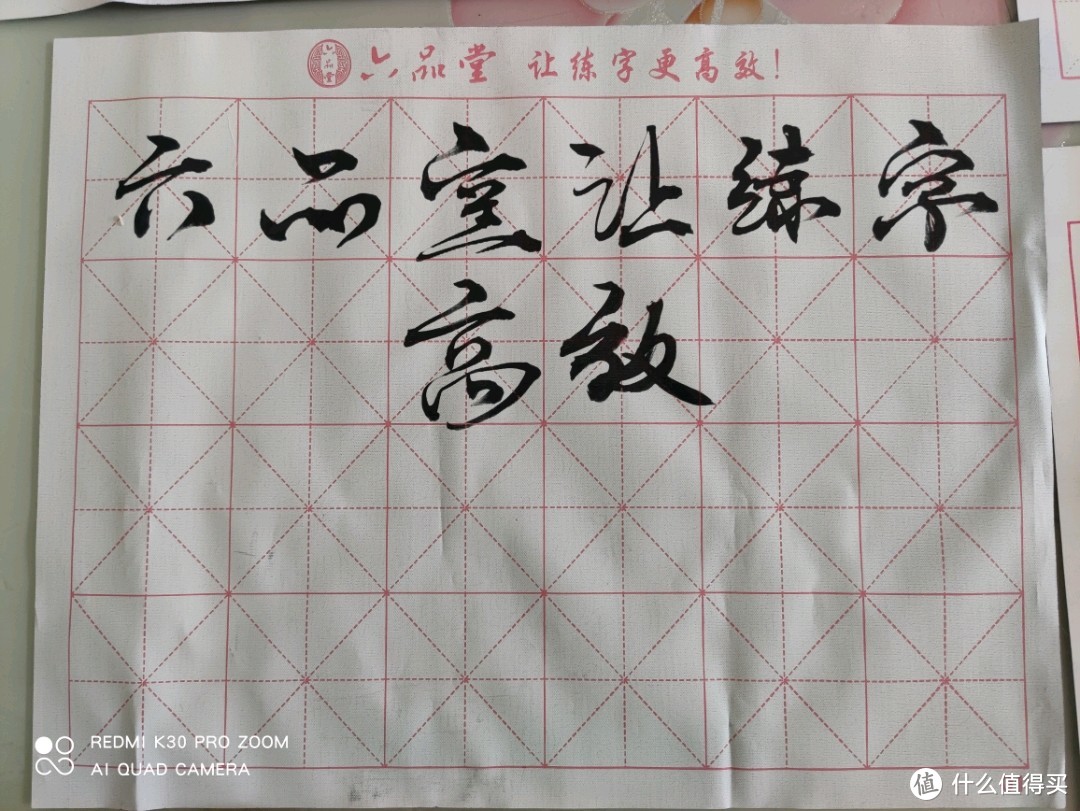 六品堂 六品堂 让练字更高效!
六品堂让练字
高效
REDMI K30 PRO ZOOM
AI QUAD CAMERA
值 什么值得买